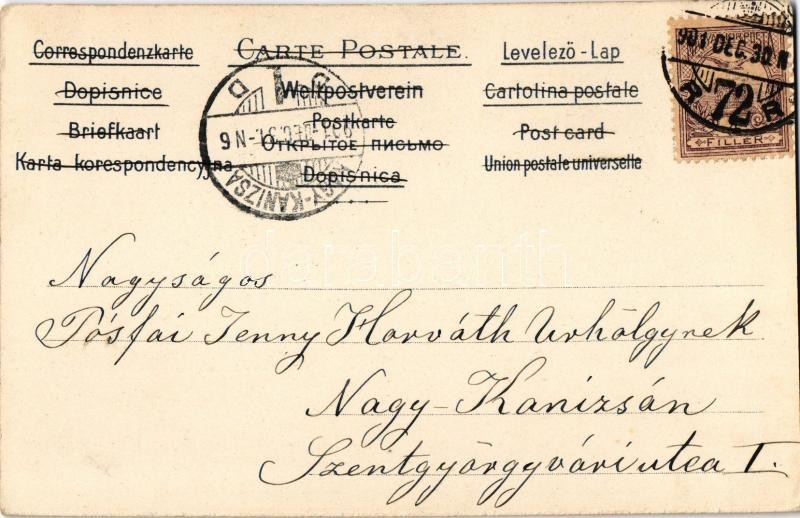 Correspondenzkarte CARTE POSTALE. Levelező-Lap
Dopisnice Weltpostverein Cartolina postale
Briefkaart Postkarte Post card
ОТКРЫТОЕ ПИСЬМО
Karta korespondencyjna Dopisnica Union postale universelle
NAGY-KANIZSA
901 DEC. 30. N
72
FILLÉR
darabanth
Nagyságos
Pósfai Jenny Horváth Urhölgynek
Nagy-Kanizsán
Szentgyörgyvári utca I.